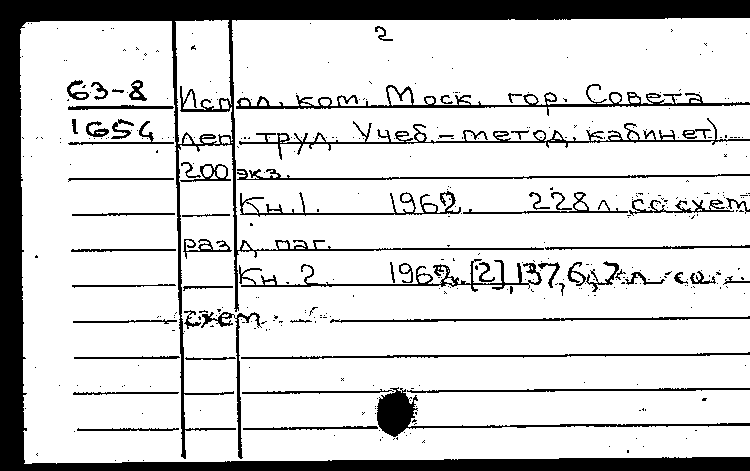 2
63-8 Испол. ком. Моск. гор. Совета
1654 деп. труд. Учеб.-метод. кабинет).
200 экз.
Кн. 1. 1962. 228 л. со схем
разд. паг.
Кн. 2 1962. [2], 137, 6, 7 л со
схем